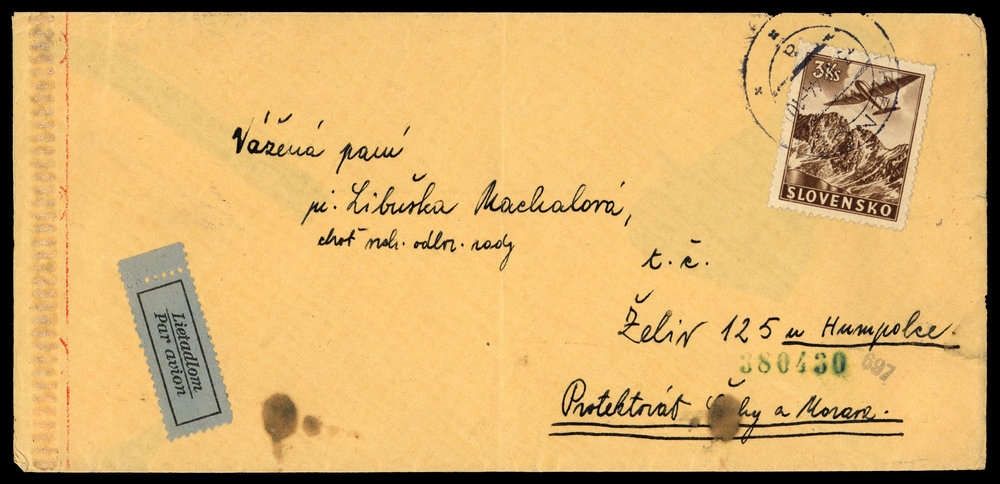 3 Ks
SLOVENSKO
Vážená paní
pí. Libuška Machalová,
choť rady
t. č.
Želiv 125 u Humpolce.
380430
697
Protektorát Čechy a Morava.
Lietadlom
Par avion